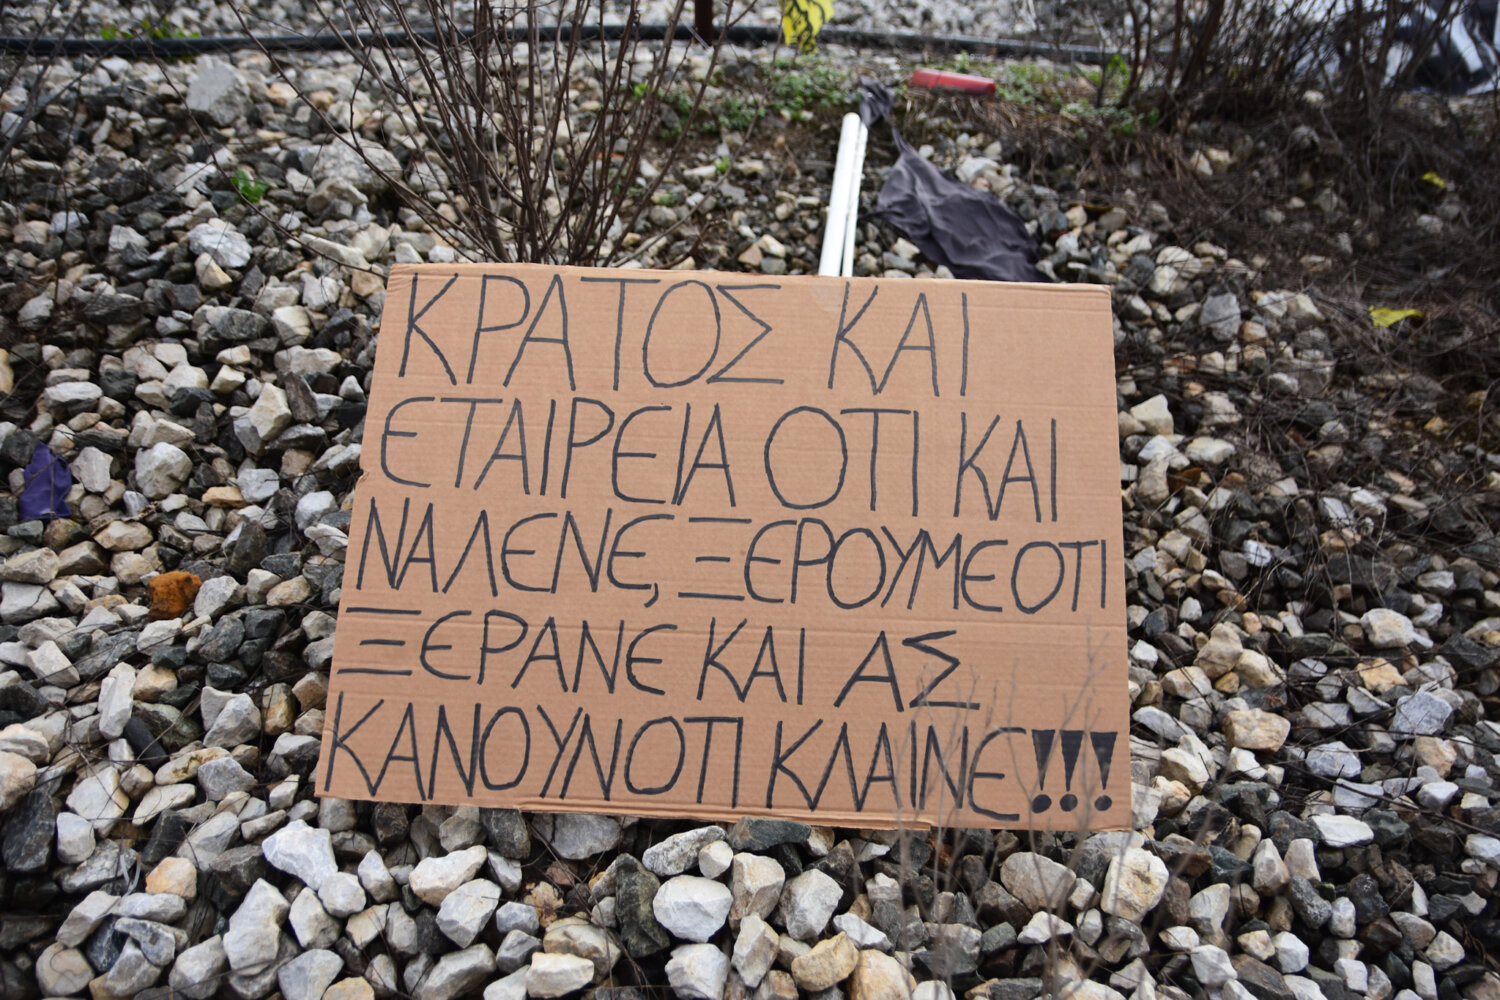 ΚΡΑΤΟΣ ΚΑΙ
ΕΤΑΙΡΕΙΑ ΟΤΙ ΚΑΙ
ΝΑ ΛΕΝΕ, ΞΕΡΟΥΜΕ ΟΤΙ
ΞΕΡΑΝΕ ΚΑΙ ΑΣ
ΚΑΝΟΥΝ ΟΤΙ ΚΛΑΙΝΕ!!!